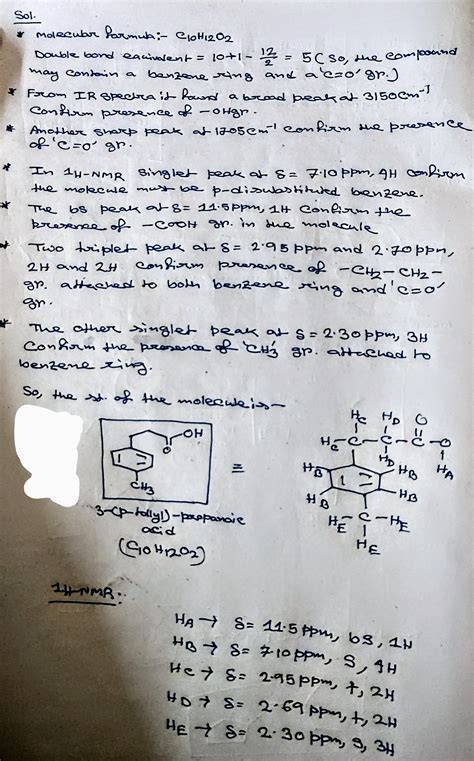 Sol.
* Molecular Formula:- C10H12O2
Double bond equivalent = 10+1 - 12/2 = 5 (so, the compound
may contain a benzene ring and a 'C=O' gr.)
* From IR spectra it found a broad peak at 3150cm-1
confirm presence of -OH gr.
* Another sharp peak at 1705cm-1 confirm the presence
of 'C=O' gr.
* In 1H-NMR singlet peak at δ= 7.10 ppm, 4H confirm
the molecule must be p-disubstituted benzene.
* The bs peak at δ= 11.5ppm, 1H confirm the
presence of -COOH gr. in the molecule
* Two triplet peak at δ= 2.95ppm and 2.70ppm,
2H and 2H confirm presence of -CH2-CH2-
gr. attached to both benzene ring and 'C=O'
gr.
* The other singlet peak at δ= 2.30ppm, 3H
confirm the presence of 'CH3' gr. attached to
benzene ring.
So, the st. of the molecule is-
OH
O
CH3
≡
HC HD O
HC-C-C-C-O
HD HA
HB HB
HB HB
HE-C-HE
HE
3-(p-tollyl)-propanoic
acid
(C10H12O2)
1H-NMR:
HA → δ= 11.5ppm, bs, 1H
HB → δ= 7.10ppm, S, 4H
HC → δ= 2.95ppm, t, 2H
HD → δ= 2.69ppm, t, 2H
HE → δ= 2.30ppm, S, 3H